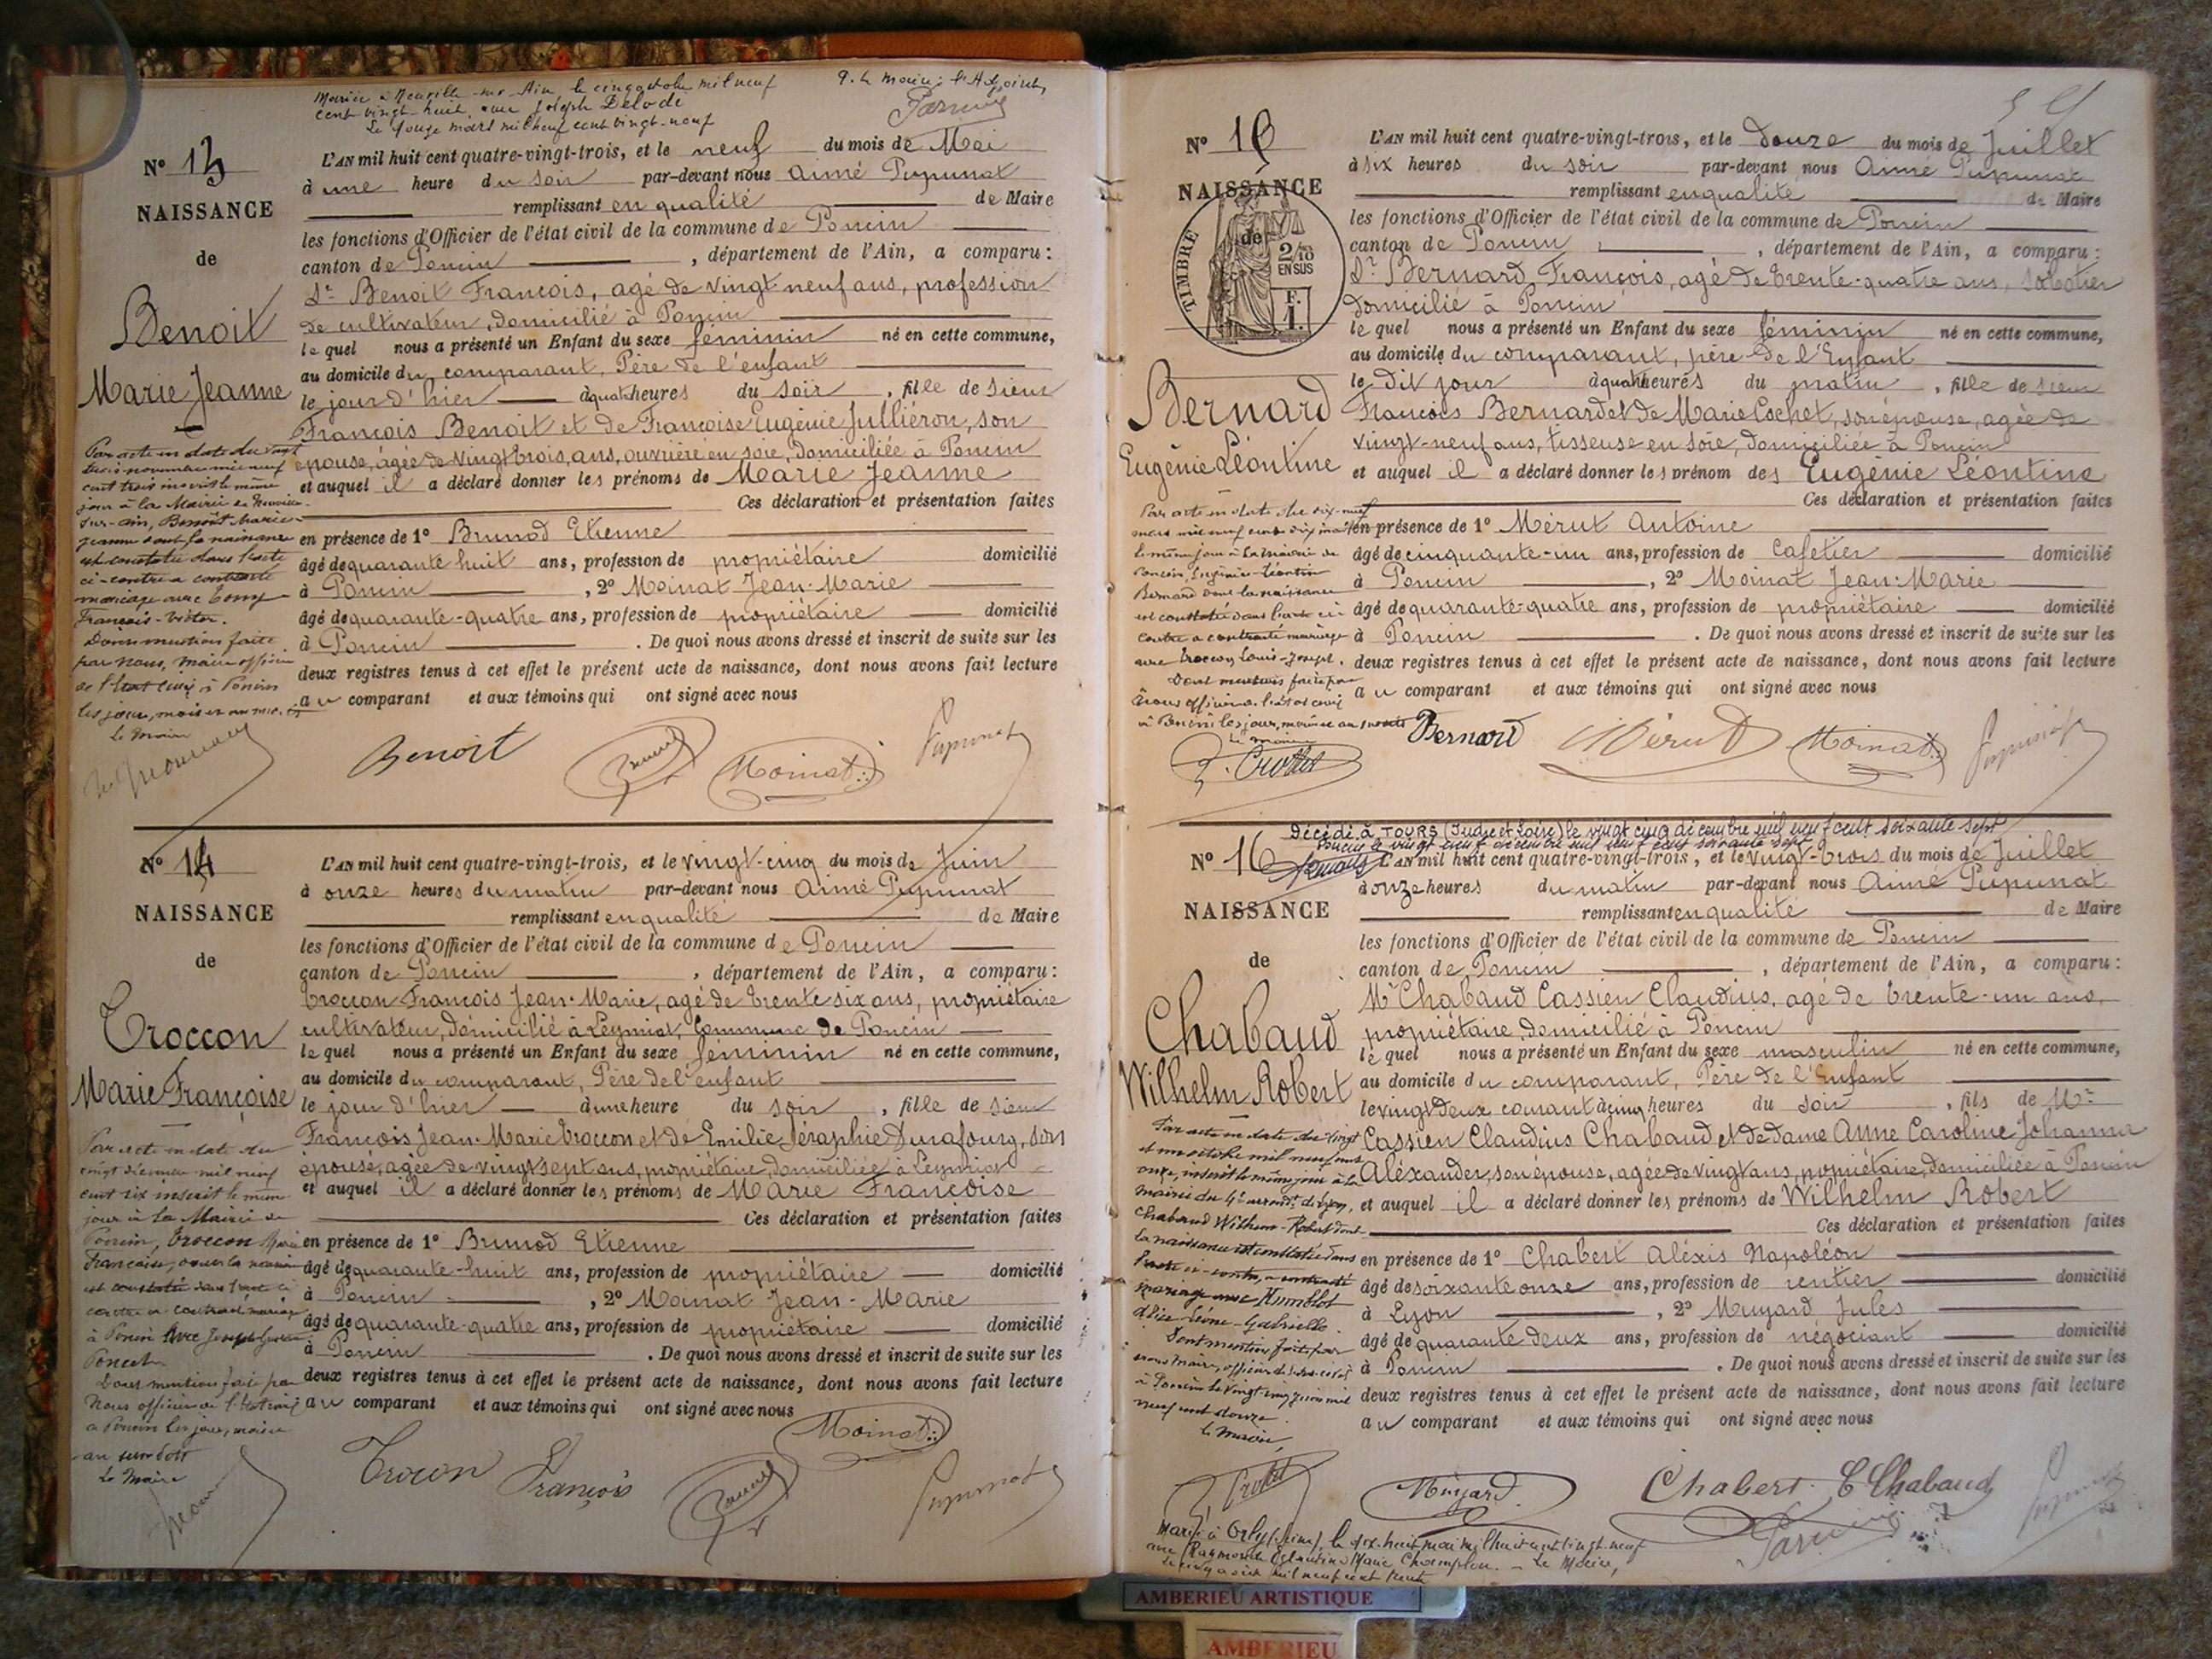 Mariée à Neuville-sur-Ain le cinq octobre mil neuf
cent vingt-huit avec Joseph Delode
Le douze mars mil neuf cent vingt-neuf
P. le Maire: l'Adjoint,
N° 13
NAISSANCE
de
Benoit
Marie Jeanne
L'AN mil huit cent quatre-vingt-trois, et le neuf du mois de Mai
à une heure du soir par-devant nous Aimé Pupunat
remplissant en qualité de Maire
les fonctions d'Officier de l'état civil de la commune de Poncin
canton de Poncin, département de l'Ain, a comparu:
Sr Benoit François, agé de vingt neuf ans, profession
de cultivateur, domicilié à Poncin
lequel nous a présenté un Enfant du sexe féminin né en cette commune,
au domicile du comparant, Père de l'enfant
le jour d'hier à quatre heures du soir, fille de sieur
François Benoit et de Françoise Eugénie Julliéron, son
épouse, agée de vingt trois, ans, ouvrière en soie, domiciliée à Poncin
et auquel il a déclaré donner les prénoms de Marie Jeanne
Ces déclaration et présentation faites
en présence de 1° Brunod Etienne
âgé de quarante huit ans, profession de propriétaire domicilié
à Poncin, 2° Moinat Jean-Marie
âgé de quarante-quatre ans, profession de propriétaire domicilié
à Poncin. De quoi nous avons dressé et inscrit de suite sur les
deux registres tenus à cet effet le présent acte de naissance, dont nous avons fait lecture
au comparant et aux témoins qui ont signé avec nous
Par acte en date du vingt
novembre mil neuf
cent trois inscrit le même
jour à la Mairie de Neuville-
sur-Ain, Benoît Marie-
Jeanne dont la naissance
est constatée dans l'acte
ci-contre a contracté
mariage avec
François-Victor.
Dont mention faite
par nous, maire officier
de l'Etat civil à Poncin
les jour, mois et an
Le Maire
Benoit
Brunod
Moinat
Pupunat
N° 14
NAISSANCE
de
Troccon
Marie Françoise
L'AN mil huit cent quatre-vingt-trois, et le vingt-cinq du mois de Juin
à onze heures du matin par-devant nous Aimé Pupunat
remplissant en qualité de Maire
les fonctions d'Officier de l'état civil de la commune de Poncin
canton de Poncin, département de l'Ain, a comparu:
Troccon François Jean-Marie, agé de trente six ans, propriétaire
cultivateur, domicilié à Leymiat, Commune de Poncin
lequel nous a présenté un Enfant du sexe féminin né en cette commune,
au domicile du comparant, Père de l'enfant
le jour d'hier à une heure du soir, fille de sieur
François Jean-Marie Troccon et de Emilie Séraphie Durafourg, son
épouse, agée de vingt sept ans, propriétaire, domiciliée à Leymiat
et auquel il a déclaré donner les prénoms de Marie Françoise
Ces déclaration et présentation faites
en présence de 1° Brunod Etienne
âgé de quarante-huit ans, profession de propriétaire domicilié
à Poncin, 2° Moinat Jean-Marie
âgé de quarante-quatre ans, profession de propriétaire domicilié
à Poncin. De quoi nous avons dressé et inscrit de suite sur les
deux registres tenus à cet effet le présent acte de naissance, dont nous avons fait lecture
au comparant et aux témoins qui ont signé avec nous
Par acte en date du
vingt mil neuf
cent six inscrit le même
jour à la Mairie de
Poncin, Troccon Marie
Française, dont la naissance
est constatée dans l'acte ci
contre a contracté mariage
à Poncin avec Joseph
Poncet
Dont mention faite par
Nous officier de l'Etat civil
à Poncin les jour, mois et
an susdits
Le Maire
Trocon François
Brunod
Moinat
Pupunat
N° 15
NAISSANCE
de
TIMBRE
2/10
EN SUS
F.
1.
Bernard
Eugénie Léontine
L'AN mil huit cent quatre-vingt-trois, et le douze du mois de Juillet
à six heures du soir par-devant nous Aimé Pupunat
remplissant en qualité de Maire
les fonctions d'Officier de l'état civil de la commune de Poncin
canton de Poncin, département de l'Ain, a comparu:
Sr Bernard François, agé de trente-quatre ans, sabotier
domicilié à Poncin
lequel nous a présenté un Enfant du sexe féminin né en cette commune,
au domicile du comparant, père de l'Enfant
le dit jour à quatre heures du matin, fille de sieur
François Bernard et de Marie Cochet, son épouse, agée de
vingt-neuf ans, tisseuse en soie, domiciliée à Poncin
et auquel il a déclaré donner les prénom des Eugénie Léontine
Ces déclaration et présentation faites
en présence de 1° Mérut Antoine
âgé de cinquante-un ans, profession de Cafetier domicilié
à Poncin, 2° Moinat Jean-Marie
âgé de quarante-quatre ans, profession de propriétaire domicilié
à Poncin. De quoi nous avons dressé et inscrit de suite sur les
deux registres tenus à cet effet le présent acte de naissance, dont nous avons fait lecture
au comparant et aux témoins qui ont signé avec nous
Par acte en date du dix-neuf
mars mil neuf cent dix inscrit
le même jour à la Mairie de
Poncin, Eugénie-Léontine
Bernard dont la naissance
est constatée dans l'acte ci
contre a contracté mariage
avec Troccon Louis-Joseph.
Dont mention faite par
Nous officier de l'état civil
à Poncin les jour, mois et an susdits
Le Maire
Crottet
Bernard
Mérut
Moinat
Pupunat
Décédé à TOURS (Indre et Loire) le vingt cinq décembre mil neuf cent soixante sept
Poncin le vingt neuf décembre mil neuf cent soixante sept
N° 16
NAISSANCE
de
Chabaud
Wilhelm Robert
L'AN mil huit cent quatre-vingt-trois, et le vingt-trois du mois de Juillet
à onze heures du matin par-devant nous Aimé Pupunat
remplissant en qualité de Maire
les fonctions d'Officier de l'état civil de la commune de Poncin
canton de Poncin, département de l'Ain, a comparu:
Mr Chabaud Cassien Claudius, agé de trente-un ans,
propriétaire, domicilié à Poncin
lequel nous a présenté un Enfant du sexe masculin né en cette commune,
au domicile du comparant, Père de l'Enfant
le vingt deux courant à cinq heures du soir, fils de Mr
Cassien Claudius Chabaud et de dame Anne Caroline Johanna
Aléxander, son épouse, agée de vingt ans, propriétaire, domiciliée à Poncin
et auquel il a déclaré donner les prénoms de Wilhelm Robert
Ces déclaration et présentation faites
en présence de 1° Chabert Aléxis Napoléon
âgé de soixante onze ans, profession de rentier domicilié
à Lyon, 2° Muyard Jules
âgé de quarante deux ans, profession de négociant domicilié
à Poncin. De quoi nous avons dressé et inscrit de suite sur les
deux registres tenus à cet effet le présent acte de naissance, dont nous avons fait lecture
au comparant et aux témoins qui ont signé avec nous
Par acte en date du vingt
et un octobre mil neuf cent
onze, inscrit le même jour à la
mairie du 4e arrondt de Lyon,
Chabaud Wilhem-Robert dont
la naissance est constatée dans
l'acte ci-contre, a contracté
mariage avec Humblot
Alice-Léonie-Gabrielle.
Dont mention faite par
nous Maire, officier de l'état-civil
à Poncin le vingt cinq juin mil
neuf cent douze.
le Maire,
Crottet
Muyard
Chabert
C Chabaud
Pupunat
Marié à Orly (Seine), le dix-huit mai mil huit cent vingt-neuf
avec Raymonde Eglantine Marie Champlon. - Le Maire,
mil neuf cent trente
AMBERIEU ARTISTIQUE
AMBERIEU